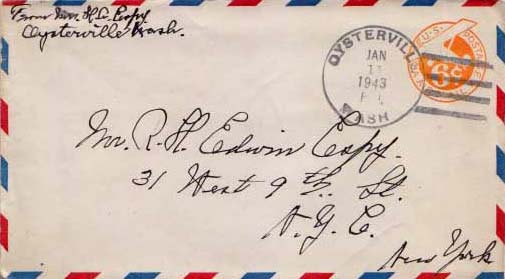 From Mrs. H. S. Espy
Oysterville Wash.
OYSTERVILLE
JAN
1943
WASH
U.S. POSTAGE
6¢
Mr. R. H. Edwin Espy.
31 West 9th. St.
N.Y.C.
New York